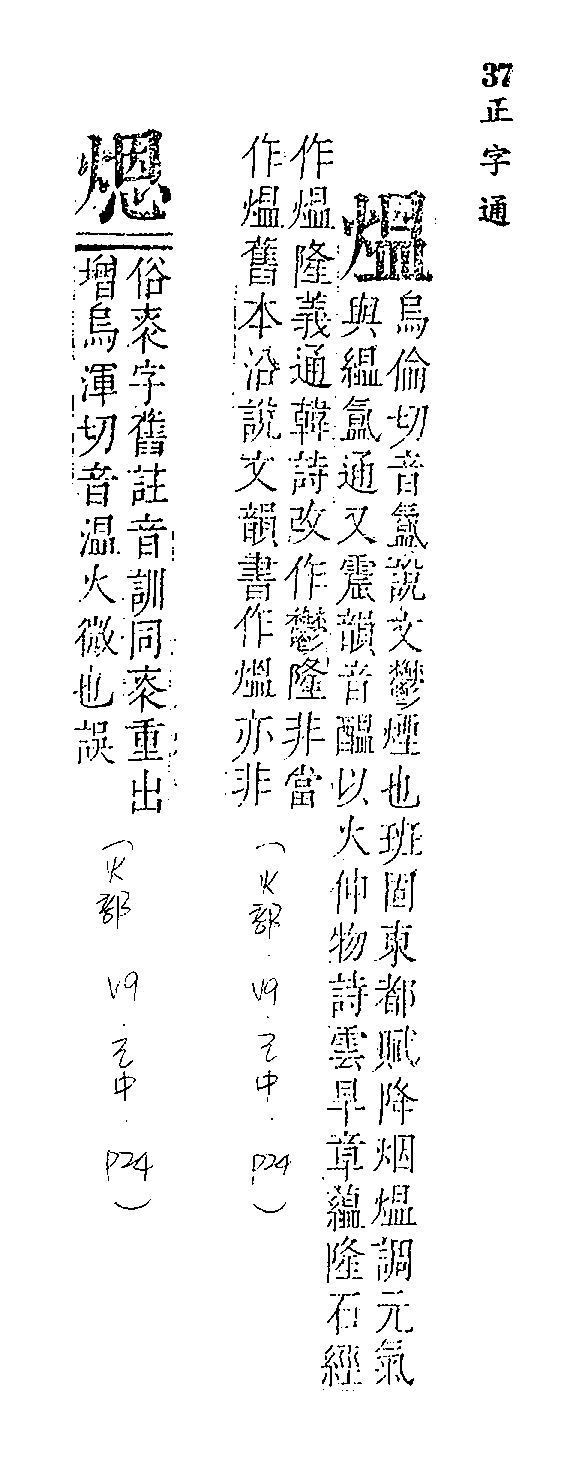 37 正字通
熅
烏倫切音氳說文鬱煙也班固東都賦降烟熅調元氣
與縕氳通又震韻音醞以火伸物詩雲旱章蘊隆石經
作熅隆義通韓詩改作鬱隆非當
作熅舊本沿說文韻書作熅亦非
(火部．V9．巳中．P24)
煾
俗字舊註音訓同重出
增烏渾切音温火微也誤
(火部 V9．巳中．P24)